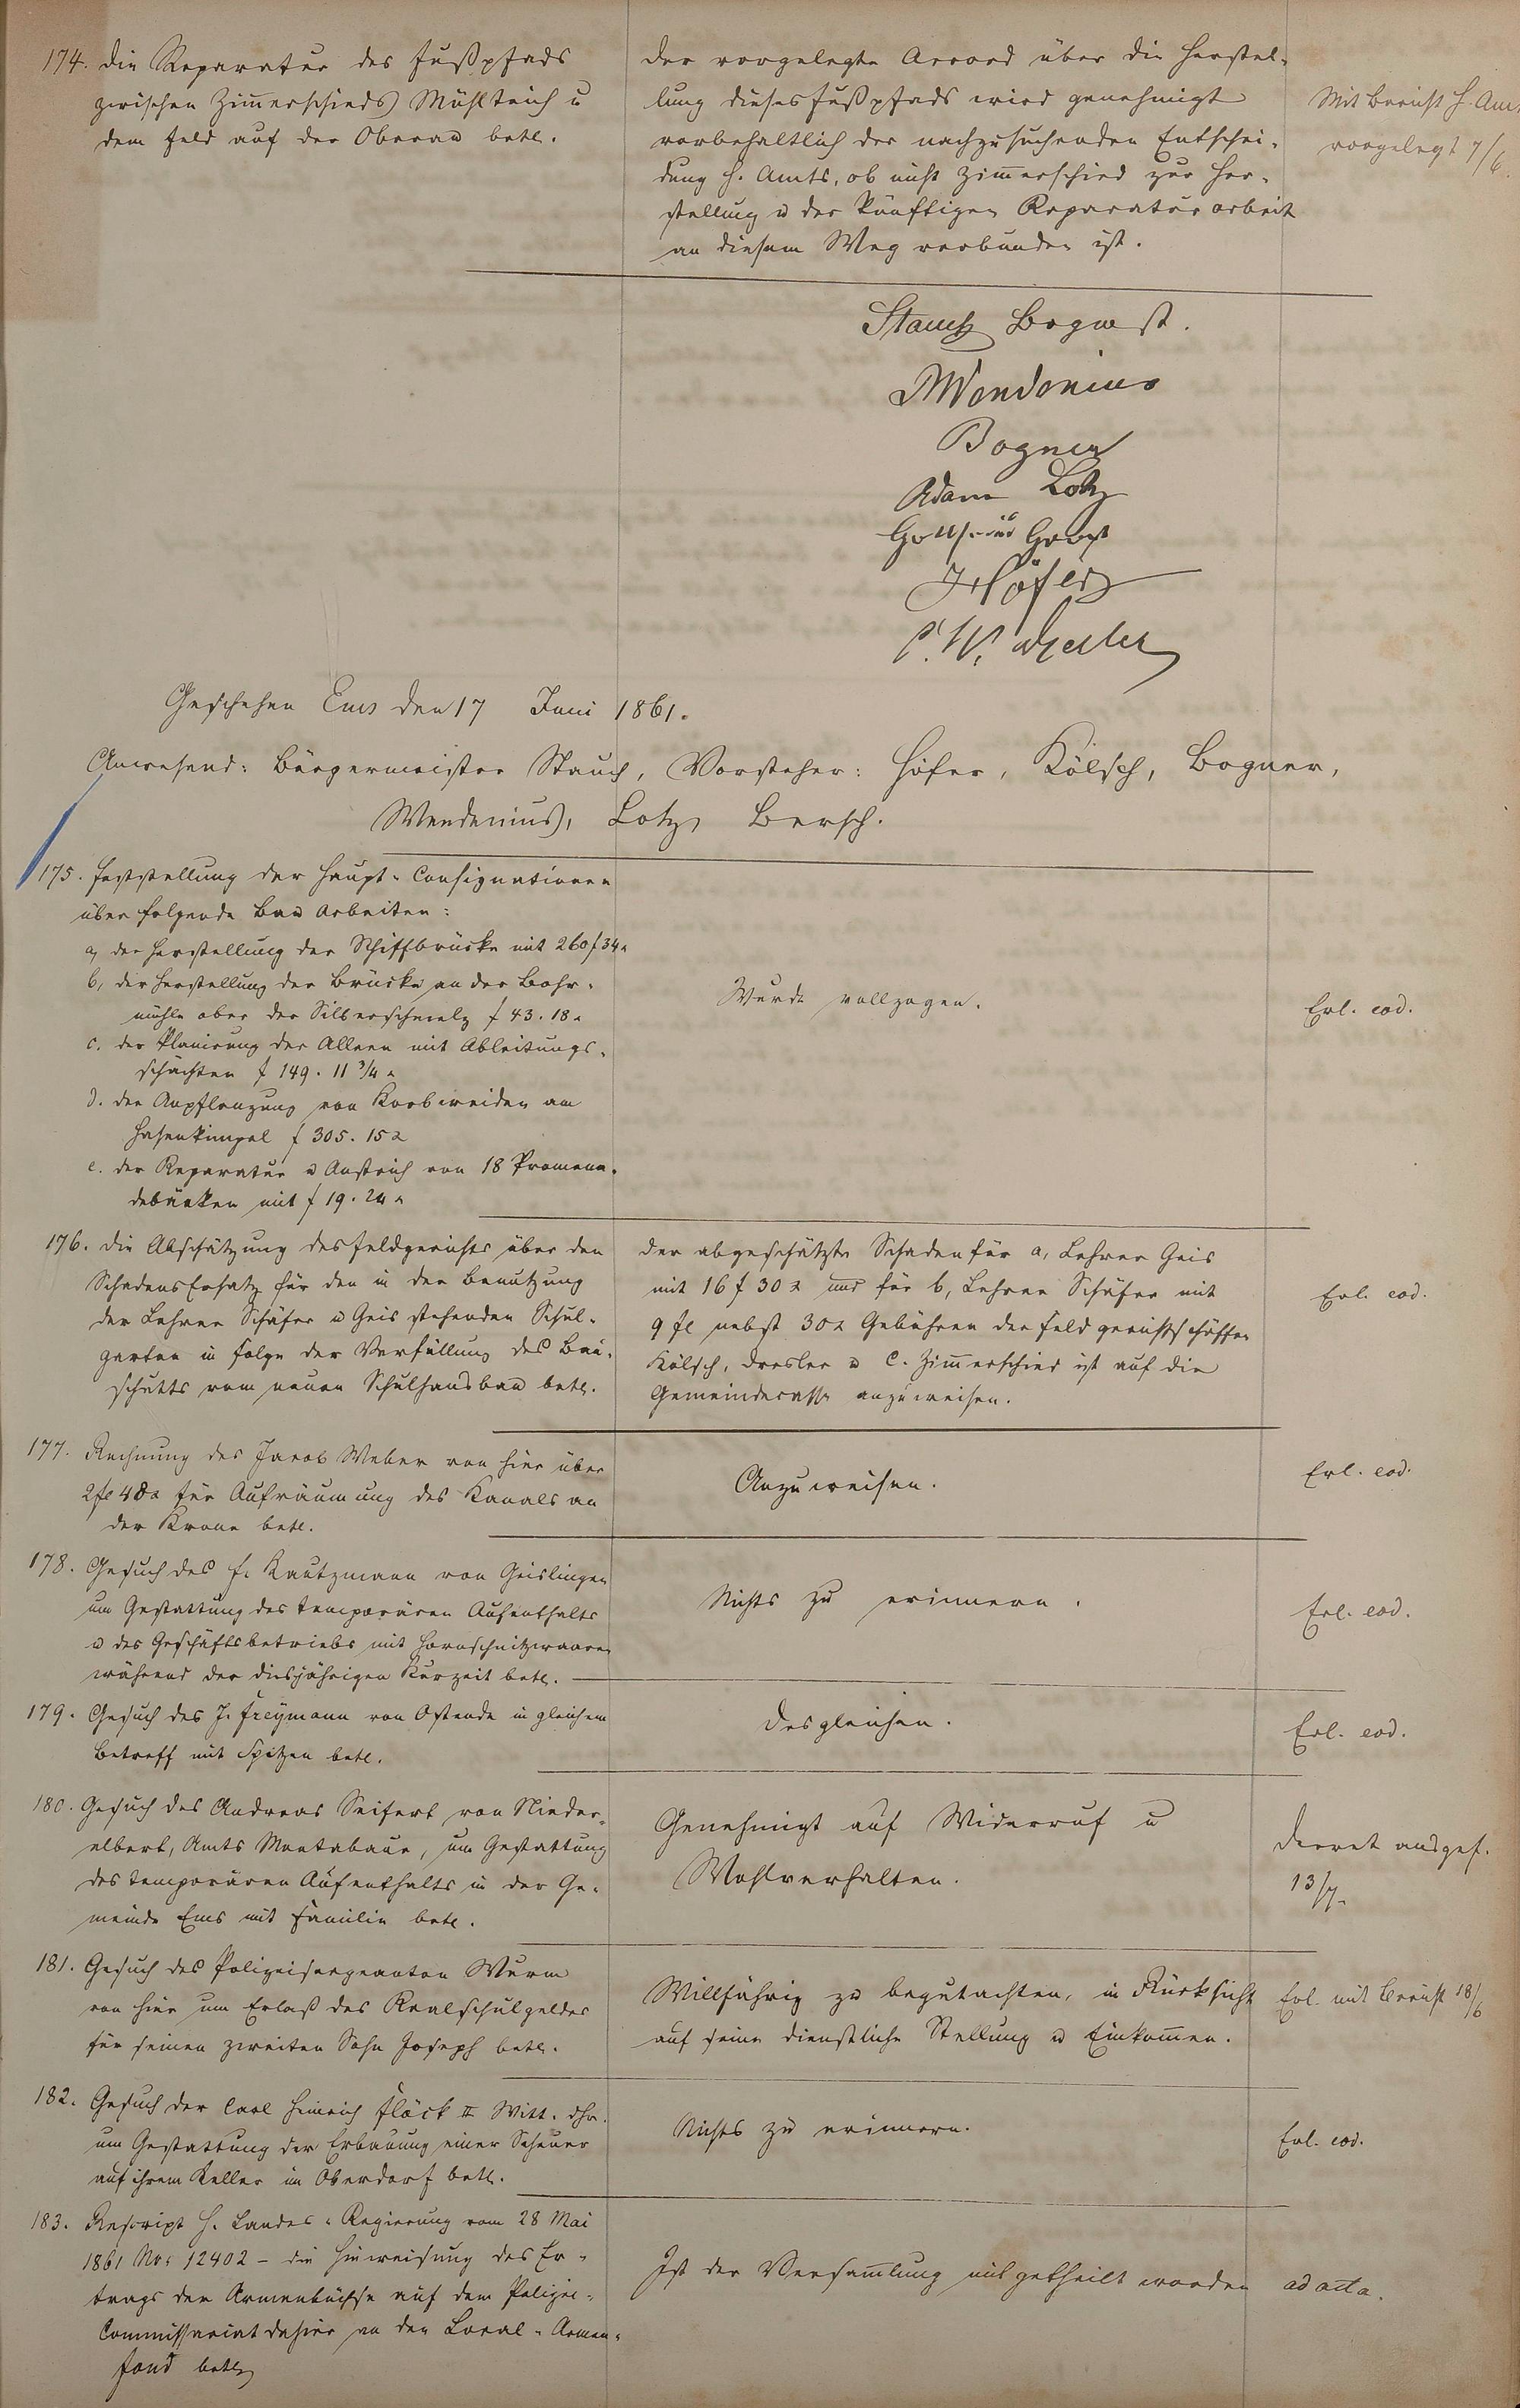 174. die Reparatur des Fußpfads
zwischen Zim̄erschieds Mühlteich u
dem Feld auf der Oberau betr.
der vorgelegte Accord über die Herstel-
lung dieses Fußpfads wird genehmigt
vorbehaltlich der nachzusuchenden Entschei-
dung H. Amts, ob nicht Zim̄erschied zur Her-
stellung u der künftigen Reparatur arbeit
an diesem Weg verbunden ist.
Mit Bericht H. Amt
vorgelegt 7/6.
Stauch Bgrmst.
Wendenius
Bogner
Adam Lotz
Höfer
Geschehen Ems den 17 Juni 1861.
Anwesend: Bürgermeister Stauch, Vorsteher: Höfer, Kölsch, Bogner,
Wendenius, Lotz, Bersch.
175. Feststellung der Haupt-Consignationen
über folgende Bau Arbeiten:
a, der Herstellung der Schiffbrücke mit 260 f 34 x
b, der Herstellung der Brücke an der Bohr-
mühle ober der Silberschmelz f 43. 18 x
c. der Planirung der Alleen mit Ableitungs-
schächten f 149. 11 3/4 x
d. der Anpflanzung von Korbweiden am
Hasenkümpel f 305. 15 x
e. der Reparatur u Anstrich von 18 Promena-
debänken mit f 19. 24 x
Wurde vollzogen.
Erl. eod.
176. die Abschätzung des Feldgerichts über den
Schadens Ersatz für den in der Benutzung
der Lehrer Schäfer u Geis stehenden Schul-
garten in Folge der Verfüllung des Bau-
schutts vom neuen Schulhausbau betr.
der abgeschätzte Schaden für a, Lehrer Geis
mit 16 f 30 x und für b, Lehrer Schäfer mit
9 fl nebst 30 x Gebühren der Feldgerichtsschöffen
Kölsch, Dresler u C. Zim̄erschied ist auf die
Gemeindecasse anzuweisen.
Erl. eod.
177. Rechnung des Jacob Weber von hier über
2 fl 48 x für Aufräumung des Kanals an
der Krone betr.
Anzuweisen.
Erl. eod.
178. Gesuch des F. Kautzmann von Geislingen
um Gestattung des temporären Aufenthalts
u des Geschäftsbetriebs mit Hornschnitzwaaren
während der diesjährigen Kurzeit betr.
Nichts zu erinnern.
Erl. eod.
179. Gesuch des J. Freymann von Ostende in gleichem
Betreff mit Spitzen betr.
desgleichen.
Erl. eod.
180. Gesuch des Andreas Seifert von Nieder-
elbert, Amts Montabaur, um Gestattung
des temporären Aufenthalts in der Ge-
meinde Ems mit Familie betr.
Genehmigt auf Widerruf u
Wohlverhalten.
Decret ausgef.
13/7.
181. Gesuch des Polizeisergeanten Wurm
von hier um Erlaß des Realschulgeldes
für seinen zweiten Sohn Joseph betr.
Willfährig zu begutachten, in Rücksicht
auf seine dienstliche Stellung u Einkom̄en.
Erl. mit Bericht 18/6
182. Gesuch der Carl Heinrich Flöck II Witt. dhr.
um Gestattung der Erbauung einer Scheuer
auf ihrem Keller im Oberdorf betr.
Nichts zu erinnern.
Erl. eod.
183. Rescript H. Landes-Regierung vom 28 Mai
1861 Nr: 12402 – die Hinweisung des Er-
trags der Armenbüchse auf dem Polizei-
Commissariat dahier an den Local-Armen-
fond betr.
Ist der Versam̄lung mitgetheilt worden
ad acta.